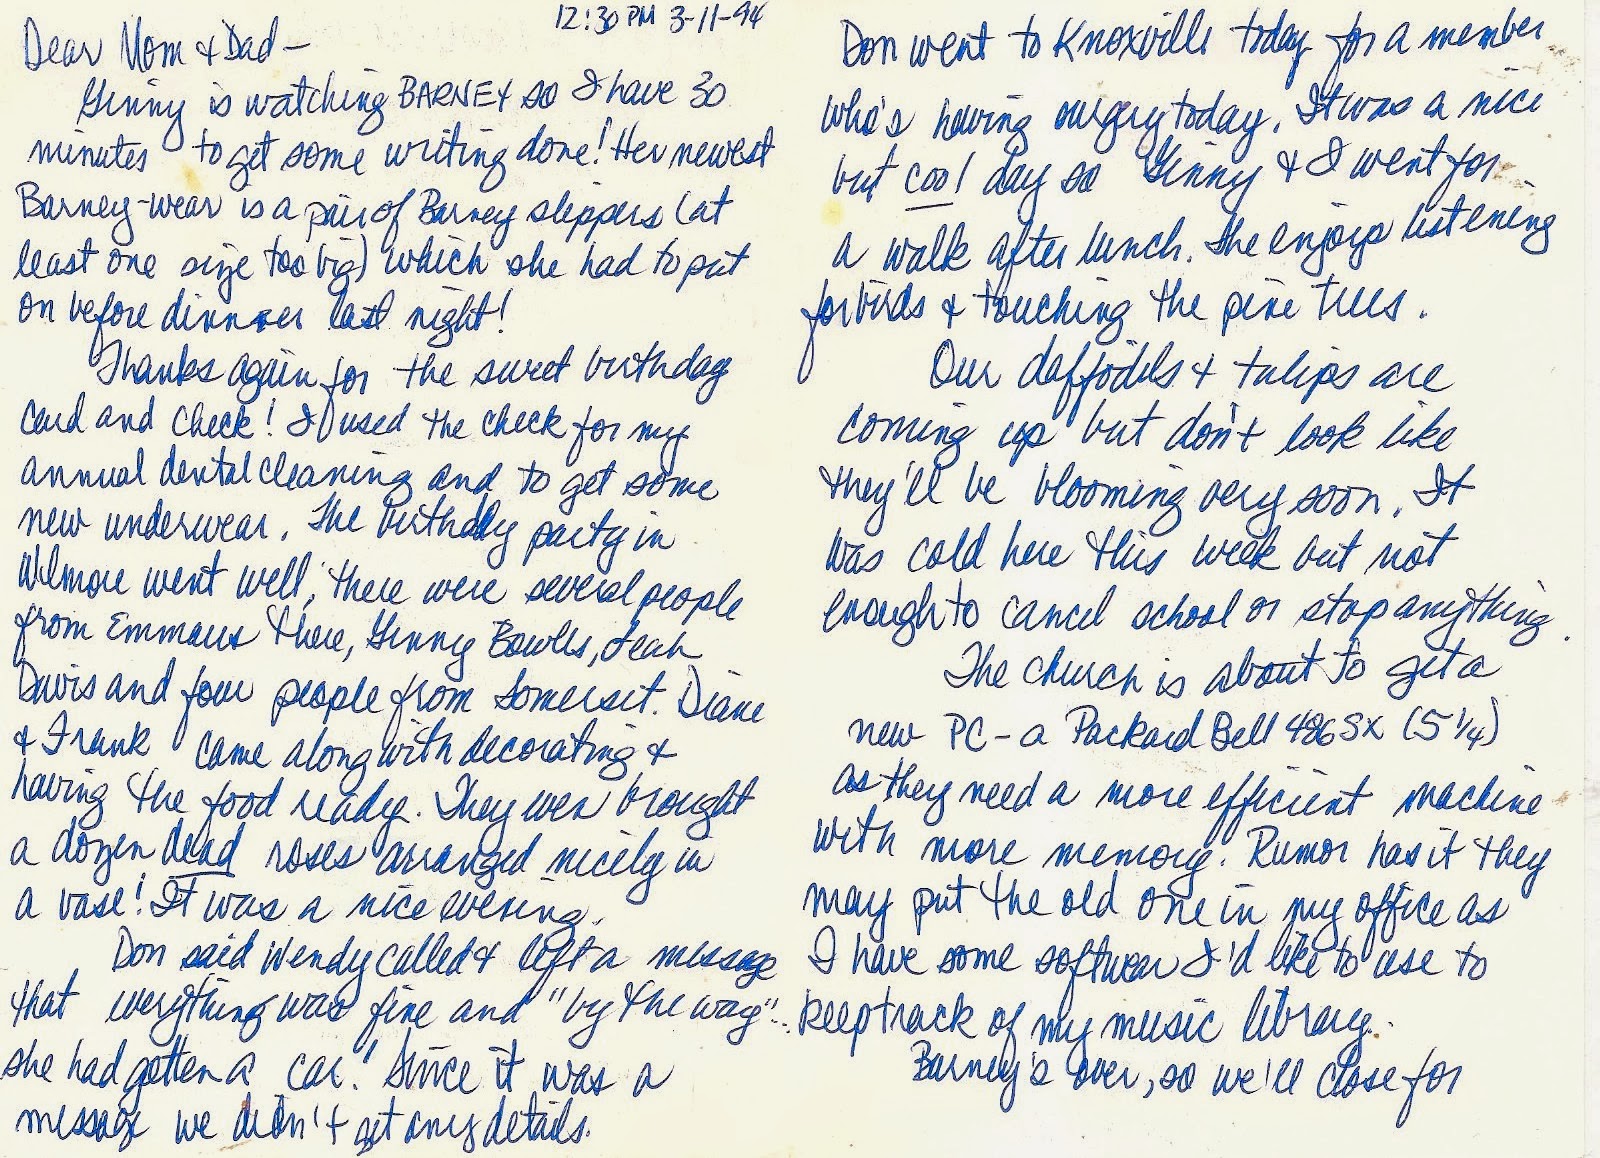 12:30 PM 3-11-94
Dear Mom & Dad –
Ginny is watching BARNEY so I have 30
minutes to get some writing done! Her newest
Barney-wear is a pair of Barney slippers (at
least one size too big) which she had to put
on before dinner last night!
Thanks again for the sweet birthday
card and check! I used the check for my
annual dental cleaning and to get some
new underwear. The birthday party in
Wilmore went well; there were several people
from Emmaus there, Ginny Bowlls, Leah
Davis and four people from Somerset. Diane
& Frank came along with decorating &
having the food ready. They even brought
a dozen dead roses arranged nicely in
a vase! It was a nice evening.
Don said Wendy called & left a message
that everything was fine and "by the way"...
she had gotten a car! Since it was a
message we didn't get any details.
Don went to Knoxville today for a member
who's having surgery today. It was a nice
but cool day so Ginny & I went for
a walk after lunch. She enjoys listening
for birds & touching the pine trees.
Our daffodils & tulips are
coming up but don't look like
they'll be blooming very soon. It
was cold here this week but not
enough to cancel school or stop anything.
The church is about to get a
new PC – a Packard Bell 486SX (5 1/4)
as they need a more efficient machine
with more memory. Rumor has it they
may put the old one in my office as
I have some softwear I'd like to use to
keep track of my music library.
Barney's over, so we'll close for